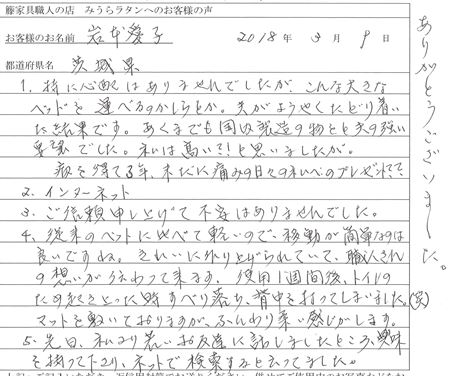 籐家具職人の店　みうらラタンへのお客様の声
お客様のお名前　岩本愛子　2018年3月9日
都道府県名　茨城県
1. 特に心配はありませんでしたが、こんな大きな
ベッドを運べるのかしらとか。夫がようやくたどり着い
た結果です。あくまでも国内製造の物とと夫の強い
要望でした。私は高い!!と思いましたが。
病を得て3年、未だに痛みの日々の私へのプレゼントです
2. インターネット
3. ご依頼申し上げて不安はありませんでした。
4. 従来のベットに比べて軽いので、移動が簡単なのは
良いですね。きれいに作り上げられていて、職人さん
の想いが伝わって来ます。使用1週間後、トイレの
ため起き上った時すべり落ち、背中を打ってしまいました。(笑)
マットを敷いておりますが、ふんわり柔い感じがします。
5. 先日、私より若いお友達に話しましたところ、興味
を持って下さり、ネットで検索すると云ってました。
ありがとうございました。